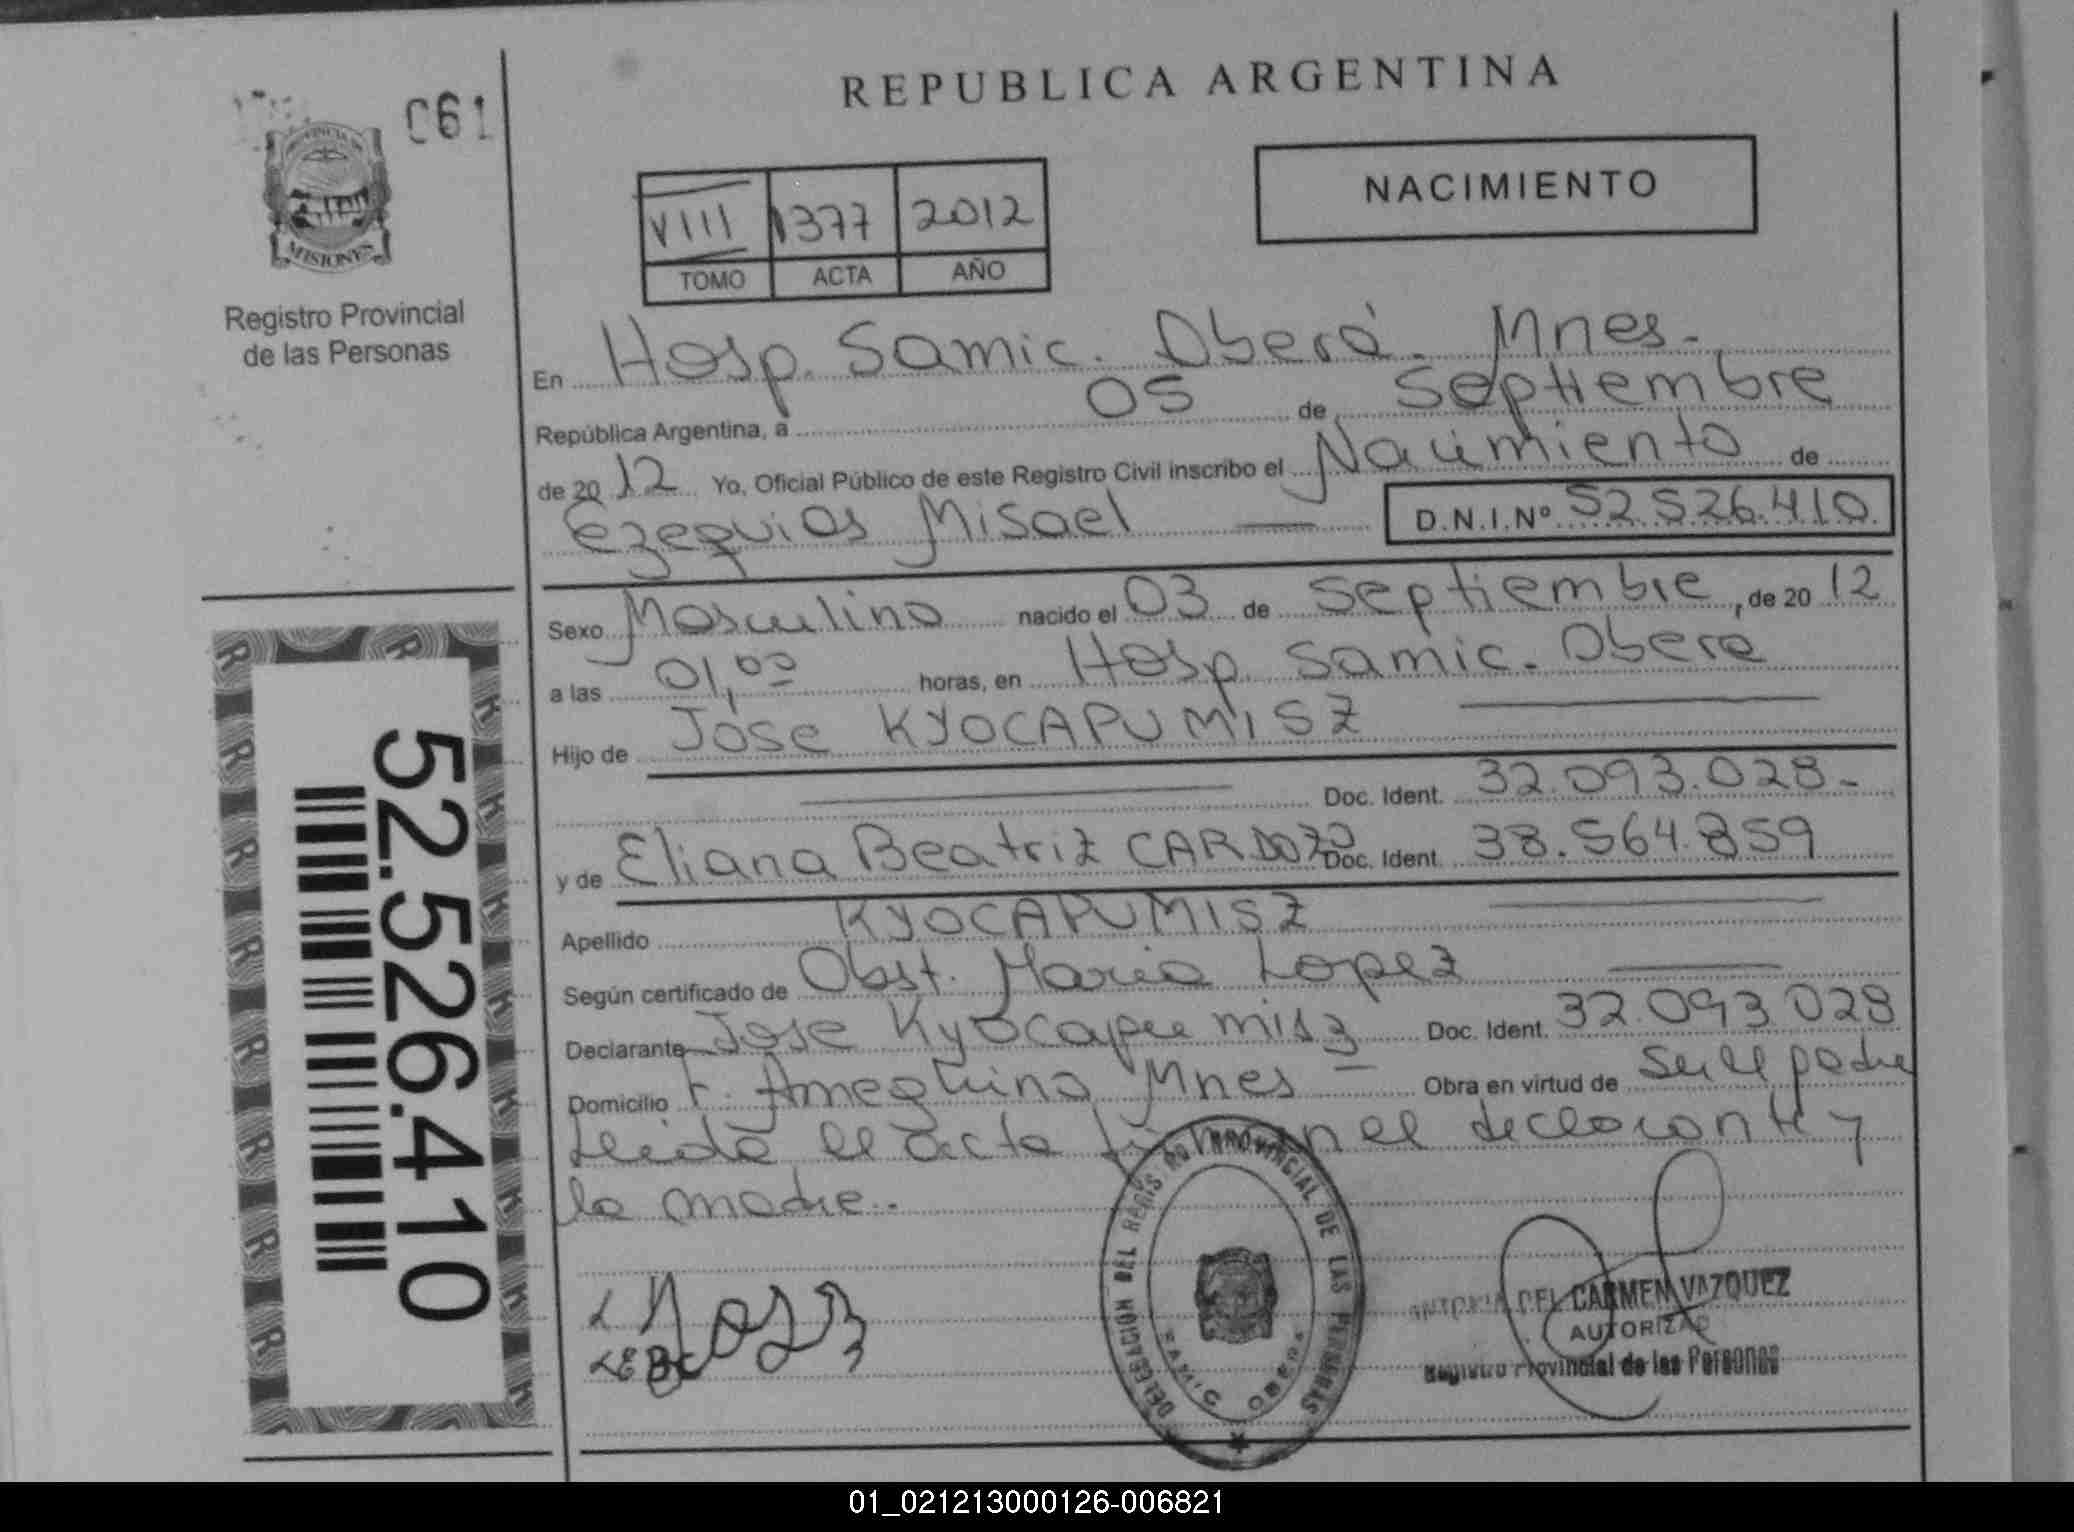 061
PROVINCIA DE
MISIONES
Registro Provincial
de las Personas
REPUBLICA ARGENTINA
VIII 1377 2012
TOMO ACTA AÑO
NACIMIENTO
En Hosp. Samic. Oberá. Mnes.
República Argentina, a 05 de Septiembre
de 2012 Yo, Oficial Público de este Registro Civil inscribo el Nacimiento de
Ezequias Misael D.N.I.Nº 52.526.410
Sexo Masculino nacido el 03 de Septiembre, de 2012
a las 01,00 horas, en Hosp. Samic. Obera
Hijo de Jose KYOCAPUMISZ
Doc. Ident. 32.093.028-
y de Eliana Beatriz CARDOZO Doc. Ident. 38.564.859
Apellido KYOCAPUMISZ
Según certificado de Obst. Maria Lopez
Declarante Jose Kyocapumisz Doc. Ident. 32.093.028
Domicilio F. Ameghino Mnes Obra en virtud de Ser el padre
Leida el acta firman el declarante y
la madre.
52.526.410
DELEGACION DEL REGISTRO PROVINCIAL DE LAS PERSONAS
SAMIC OBERA
ANTONIA DEL CARMEN VAZQUEZ
AUTORIZAD
Registro Provincial de las Personas
01_021213000126-006821